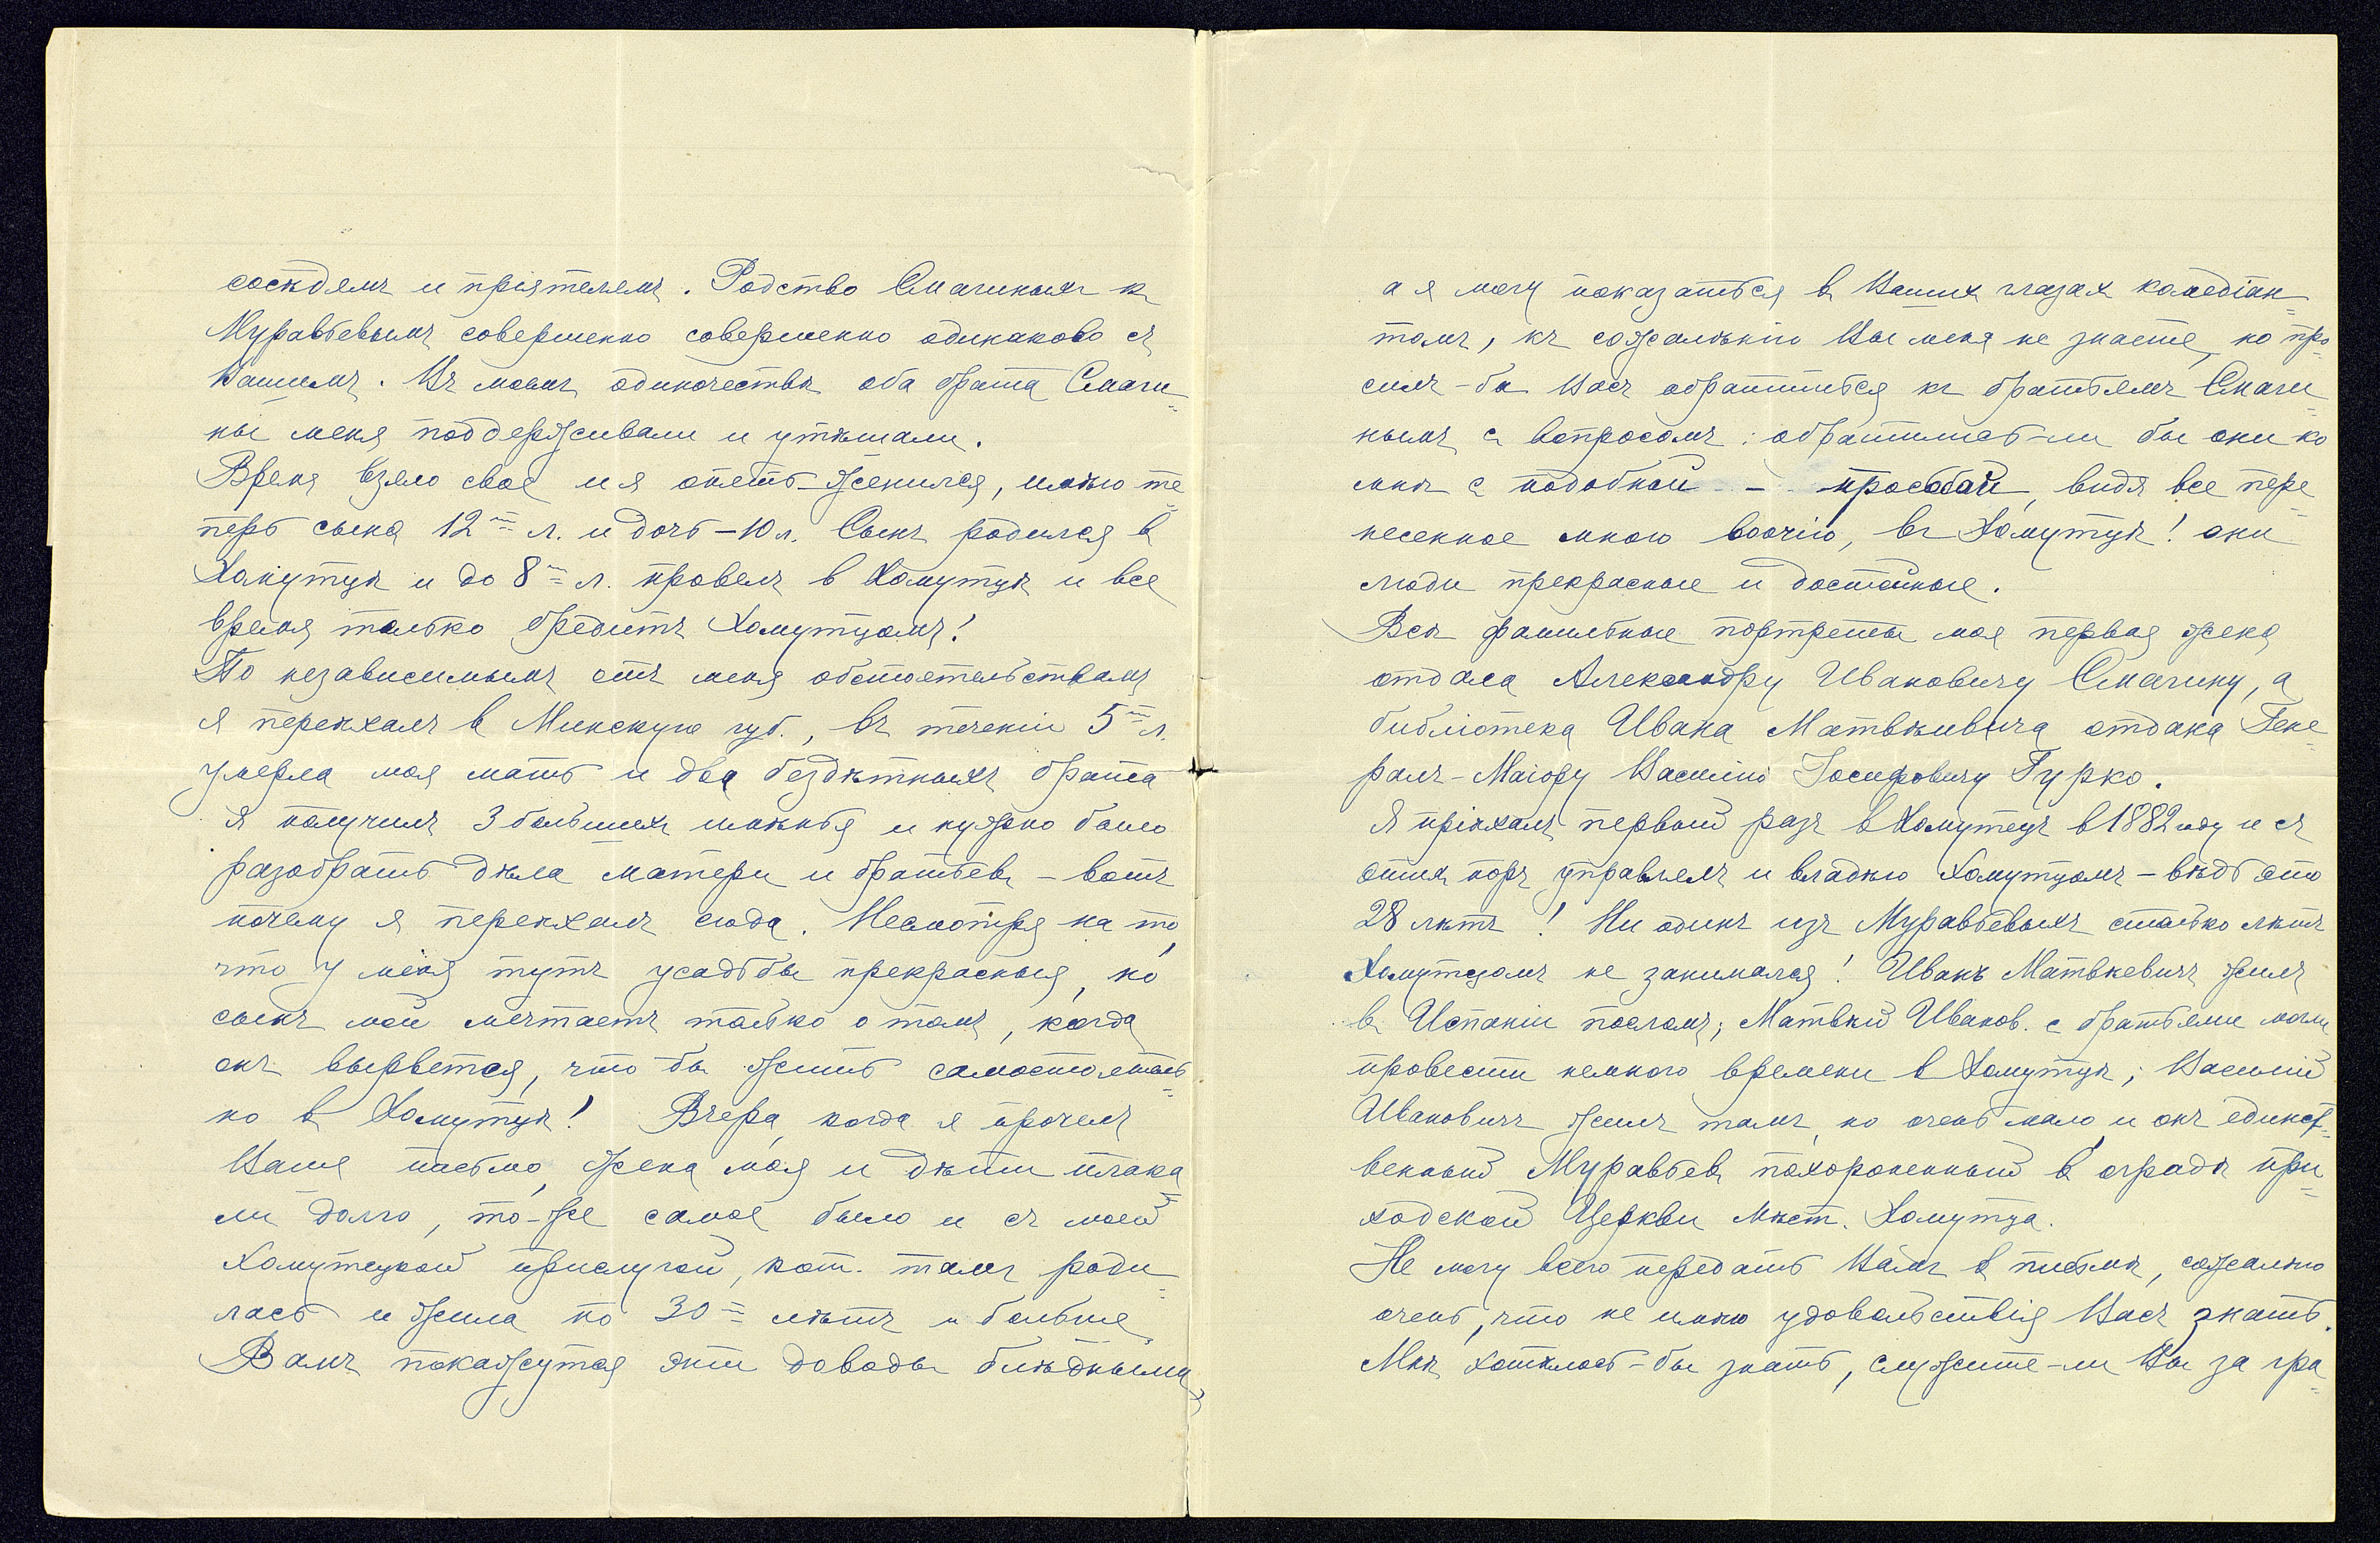 сосѣдямъ и пріятелямъ. Родство Смагиныхъ к
Муравьевымъ совершенно совершенно одинаково съ
Вашимъ. Въ моемъ одиночествѣ оба брата Смаги-
ны меня поддерживали и утѣшали.
Время взяло свое и я опять женился, имѣю те-
перь сына 12ти л. и дочь – 10 л. Сынъ родился в
Хомутцѣ и до 8ми л. провелъ в Хомутцѣ и все
время только бредитъ Хомутцомъ!
По независимымъ отъ меня обстоятельствамъ
я переѣхалъ в Минскую губ., въ теченіи 5ти л.
умерла моя мать и два бездѣтныхъ брата
я получилъ 3 большихъ имѣнья и нужно было
разобрать дѣла матери и братьевъ – вотъ
почему я переѣхалъ сюда. Несмотря на то,
что у меня тутъ усадьбы прекрасныя, но
сынъ мой мечтаетъ только о томъ, когда
онъ вырвется, что бы жить самостоятель-
но в Хомутцѣ! Вчера, когда я прочелъ
Ваше письмо, жена моя и дѣти плака-
ли долго, то-же самое было и съ моей
Хомутецкой прислугой, кот. тамъ роди-
лась и жила по 30ти лѣтъ и больше.
Вамъ покажутся эти доводы блѣдными,
а я могу показаться в Вашихъ глазах комедіан-
томъ, къ сожалѣнію Вы меня не знаете, но про-
силъ-бы Васъ обратиться къ братьямъ Смаги-
нымъ съ вопросомъ: обратились-ли бы они ко
мнѣ с подобной – просьбой, видя все пере-
несенное мною воочію, въ Хомутцѣ! они
люди прекрасные и достойные.
Всѣ фамильные портреты моя первая жена
отдала Александру Ивановичу Смагину, а
библіотека Ивана Матвѣивича отдана Гене-
ралъ-Маіору Василію Іосифовичу Гурко.
Я пріѣхалъ первый разъ в Хомутецъ в 1882 году и съ
этихъ поръ управлялъ и владѣю Хомутцомъ – вѣдь это
28 лѣтъ! Ни одинъ изъ Муравьевыхъ столько лѣтъ
Хомутцомъ не занимался! Иванъ Матвѣевичъ жилъ
в Испаніи посломъ; Матвѣй Иванов. с братьями могли
провести немного времени в Хомутцѣ; Василій
Ивановичъ жилъ тамъ, но очень мало и онъ единст-
венный Муравьевъ похороненный в оградѣ при-
ходской Церкви мѣст. Хомутца.
Не могу всего передать Вамъ в письмѣ, сожалѣю
очень, что не имѣю удовольствія Васъ знать.
Мнѣ хотѣлось-бы знать, служите-ли Вы за гра-